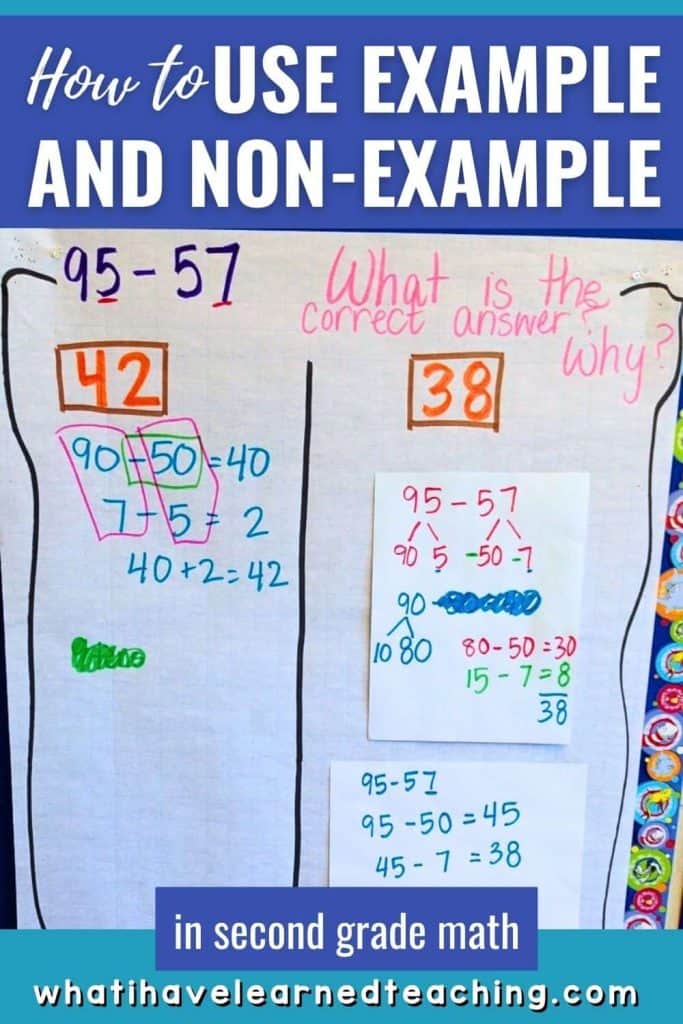 How to USE EXAMPLE
AND NON-EXAMPLE
95 - 57
What is the
correct answer?
Why?
42
90 - 50 = 40
7 - 5 = 2
40 + 2 = 42
38
95 - 57
90 5 -50 -7
90 -
10 80
80 - 50 = 30
15 - 7 = 8
38
95 - 57
95 - 50 = 45
45 - 7 = 38
in second grade math
whatihavelearnedteaching.com